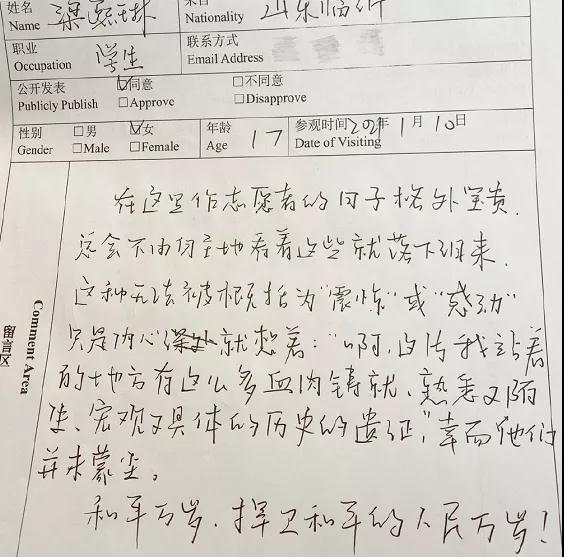 姓名 梁熙琳 来自 山东临沂
Name Nationality
职业 学生 联系方式
Occupation Email Address
公开发表 ☑同意 □不同意
Publicly Publish □Approve □Disapprove
性别 □男 ☑女 年龄 17 参观时间2021年1月10日
Gender □Male □Female Age Date of Visiting
留言区
Comment Area
在这里作志愿者的日子格外宝贵.
总会不由自主地看着这些就落下泪来.
这种无法被概括为“震惊”或“感动”
只是内心深处就想着:“啊,这片我站着
的土地方有这么多血肉铸就、熟悉又陌
生、宏观又具体的历史的遗证,”幸而他们
并未蒙尘。
和平万岁.捍卫和平的人民万岁!